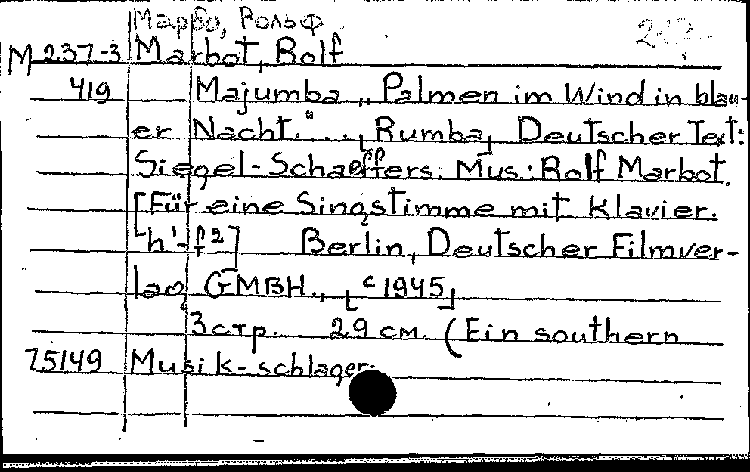 Марбо, Рольф
М 237-3 Marbot, Rolf
419 Majumba „Palmen im Wind in blau-
er Nacht."... [Rumba] Deutscher Text:
Siegel-Schaeffers. Mus.: Rolf Marbot.
[Für eine Singstimme mit Klavier.
h'-f²] Berlin, Deutscher Filmver-
lag GMBH., [c 1945]
3 стр. 29 см. (Ein southern
75149 Musik-schlager.